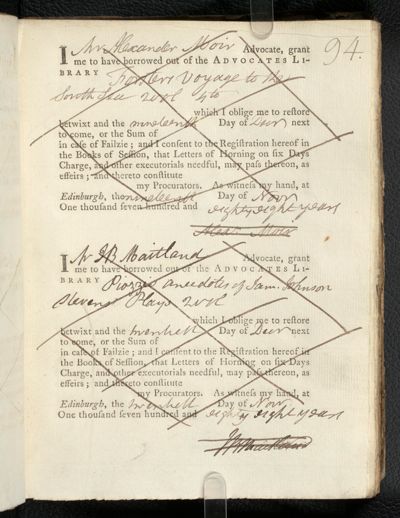 94.
I Mr Alexander Moir Advocate, grant
me to have borrowed out of the ADVOCATES LI-
BRARY Forsters Voyage to the
South Sea 2 vol 4to
which I oblige me to reſtore
betwixt and the nineteenth Day of Decr next
to come, or the Sum of
in caſe of Failzie; and I conſent to the Regiſtration hereof in
the Books of Seſſion, that Letters of Horning on ſix Days
Charge, and other executorials needful, may paſs thereon, as
effeirs; and thereto conſtitute
my Procurators. As witneſs my hand, at
Edinburgh, the nineteenth Day of Novr
One thouſand ſeven hundred and eighty eight years
Alexr Moir
I Mr JB Maitland Advocate, grant
me to have borrowed out of the ADVOCATES LI-
BRARY Piozzi's anecdotes of Sam. Johnson
Stevens Plays 2 vol
which I oblige me to reſtore
betwixt and the twentieth Day of Decr next
to come, or the Sum of
in caſe of Failzie; and I conſent to the Regiſtration hereof in
the Books of Seſſion, that Letters of Horning on ſix Days
Charge, and other executorials needful, may paſs thereon, as
effeirs; and thereto conſtitute
my Procurators. As witneſs my hand, at
Edinburgh, the twentieth Day of Novr
One thouſand ſeven hundred and eighty eight years
JB Maitland